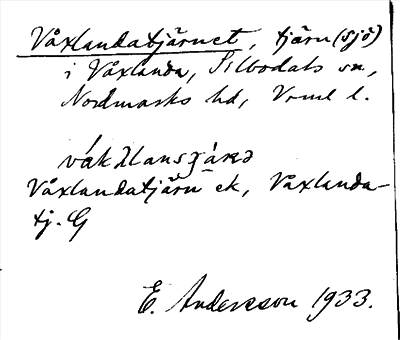 Våxlandatjärnet, tjärn (sjö)
i Våxlanda, Silbodals sn,
Nordmarks hd, Vrml l.
Våxlandatjärn ek, Våxlanda-
tj. G
E. Andersson 1933.